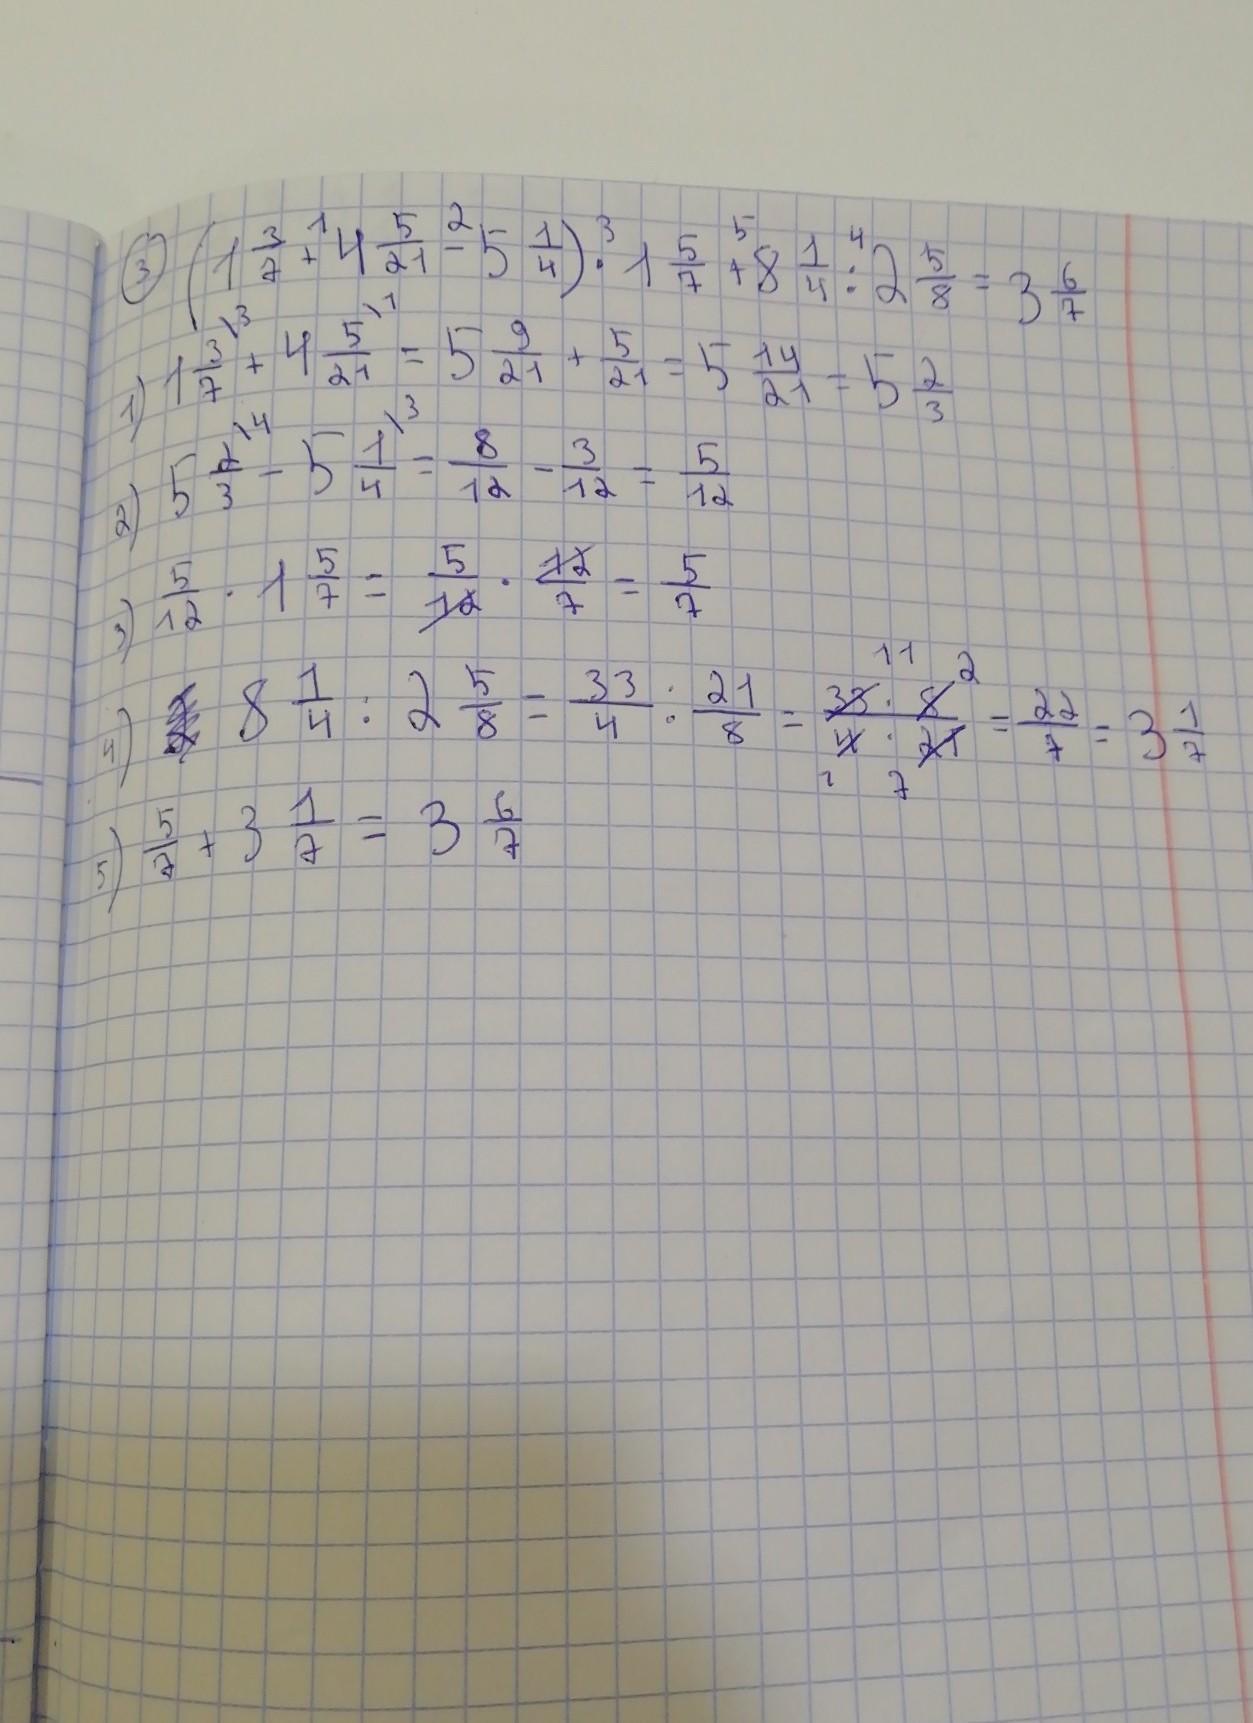 ③ (1 3/7 + 4 5/21 - 5 1/4) · 1 5/7 + 8 1/4 : 2 5/8 = 3 6/7
1) 1 3/7 \3 + 4 5/21 \1 = 5 9/21 + 5/21 = 5 14/21 = 5 2/3
2) 5 2/3 \4 - 5 1/4 \3 = 8/12 - 3/12 = 5/12
3) 5/12 · 1 5/7 = 5/12 · 12/7 = 5/7
4) 8 1/4 : 2 5/8 = 33/4 : 21/8 = 33 · 8 / 4 · 21 = 22/7 = 3 1/7
5) 5/7 + 3 1/7 = 3 6/7